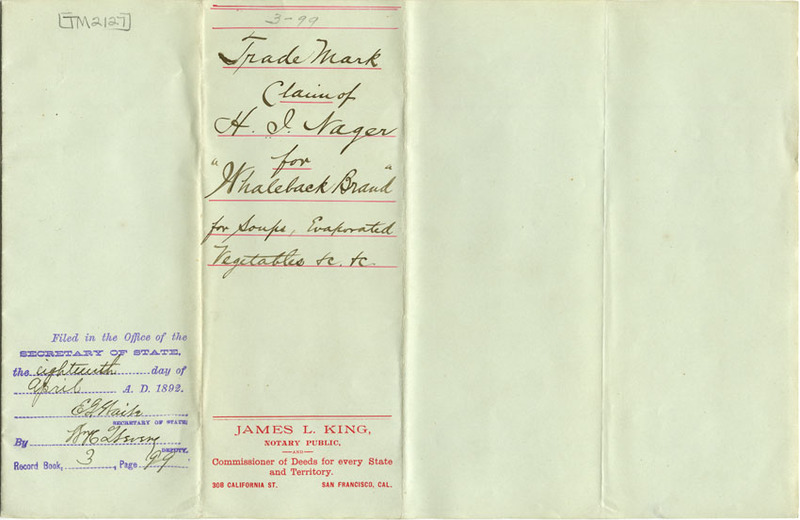 TM2127
3-99
Trade Mark
Claim of
H. I. Nager
for
"Whaleback Brand"
for Soups, Evaporated
Vegetables &c. &c.
Filed in the Office of the
SECRETARY OF STATE,
the eighteenth day of
April A. D. 1892.
E G Waite
SECRETARY OF STATE
By
DEPUTY.
Record Book, 3, Page 99
JAMES L. KING,
NOTARY PUBLIC,
—AND—
Commissioner of Deeds for every State
and Territory.
308 CALIFORNIA ST. SAN FRANCISCO, CAL.